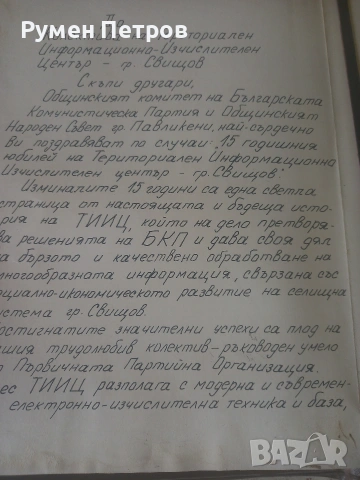 Румен Петров
До
Териториален
Информационно-Изчислителен
Център - гр. Свищов
Скъпи другари,
Общинският комитет на Българската
Комунистическа Партия и Общинският
Народен Съвет гр. Павликени, най-сърдечно
Ви поздравяват по случай "15 годишния
юбилей на Териториален Информационно
Изчислителен център - гр. Свищов"
Изминалите 15 години са една светла
страница от настоящата и бъдеща исто-
рия на ТИИЦ, който на дело претворя-
ва решенията на БКП и дава своя дял
на бързото и качествено обработване на
многообразната информация, свързана със
социално-икономическото развитие на селищна
система гр. Свищов.
остигнатите значителни успехи са плод на
ашия трудолюбив колектив-ръководен умело
Първичната Партийна Организация.
ес ТИИЦ разполага с модерна и съвремен-
електронно-изчислителна техника и база,
BAZAR